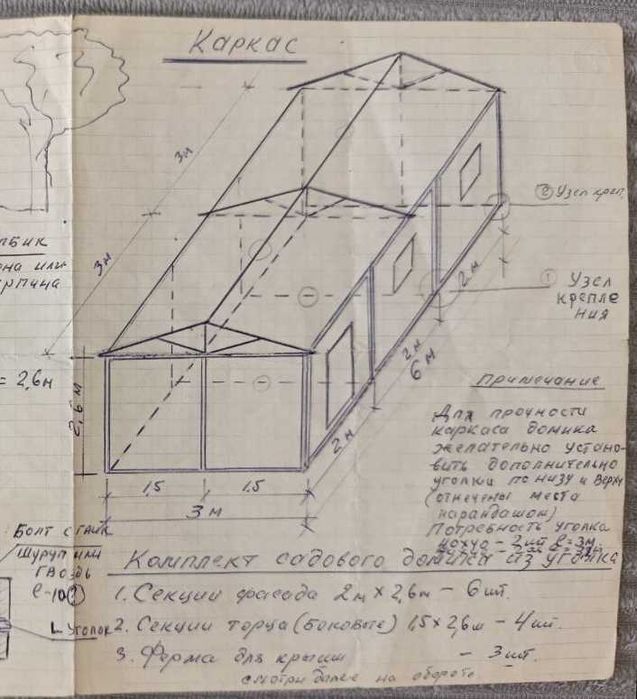 Каркас
3м
3м
2 Узел креп.
1 Узел
крепле
ния
2м
2м
6м
2м
2,6 м
1,5
1,5
3 м
= 2,6м
Примечание
Для прочности
каркаса домика
желательно устано-
вить дополнительно
уголки по низу и верху
(отмечены места
карандашом)
Потребность уголка
Болт с гайк
Шуруп или
гвоздь
Уголок
Комплект садового домика из уголка
1. Секции фасада 2м х 2,6м - 6 шт.
2. Секции торца (боковые) 1,5 х 2,6м - 4 шт.
3. Ферма для крыши - 3 шт.
смотри далее на обороте